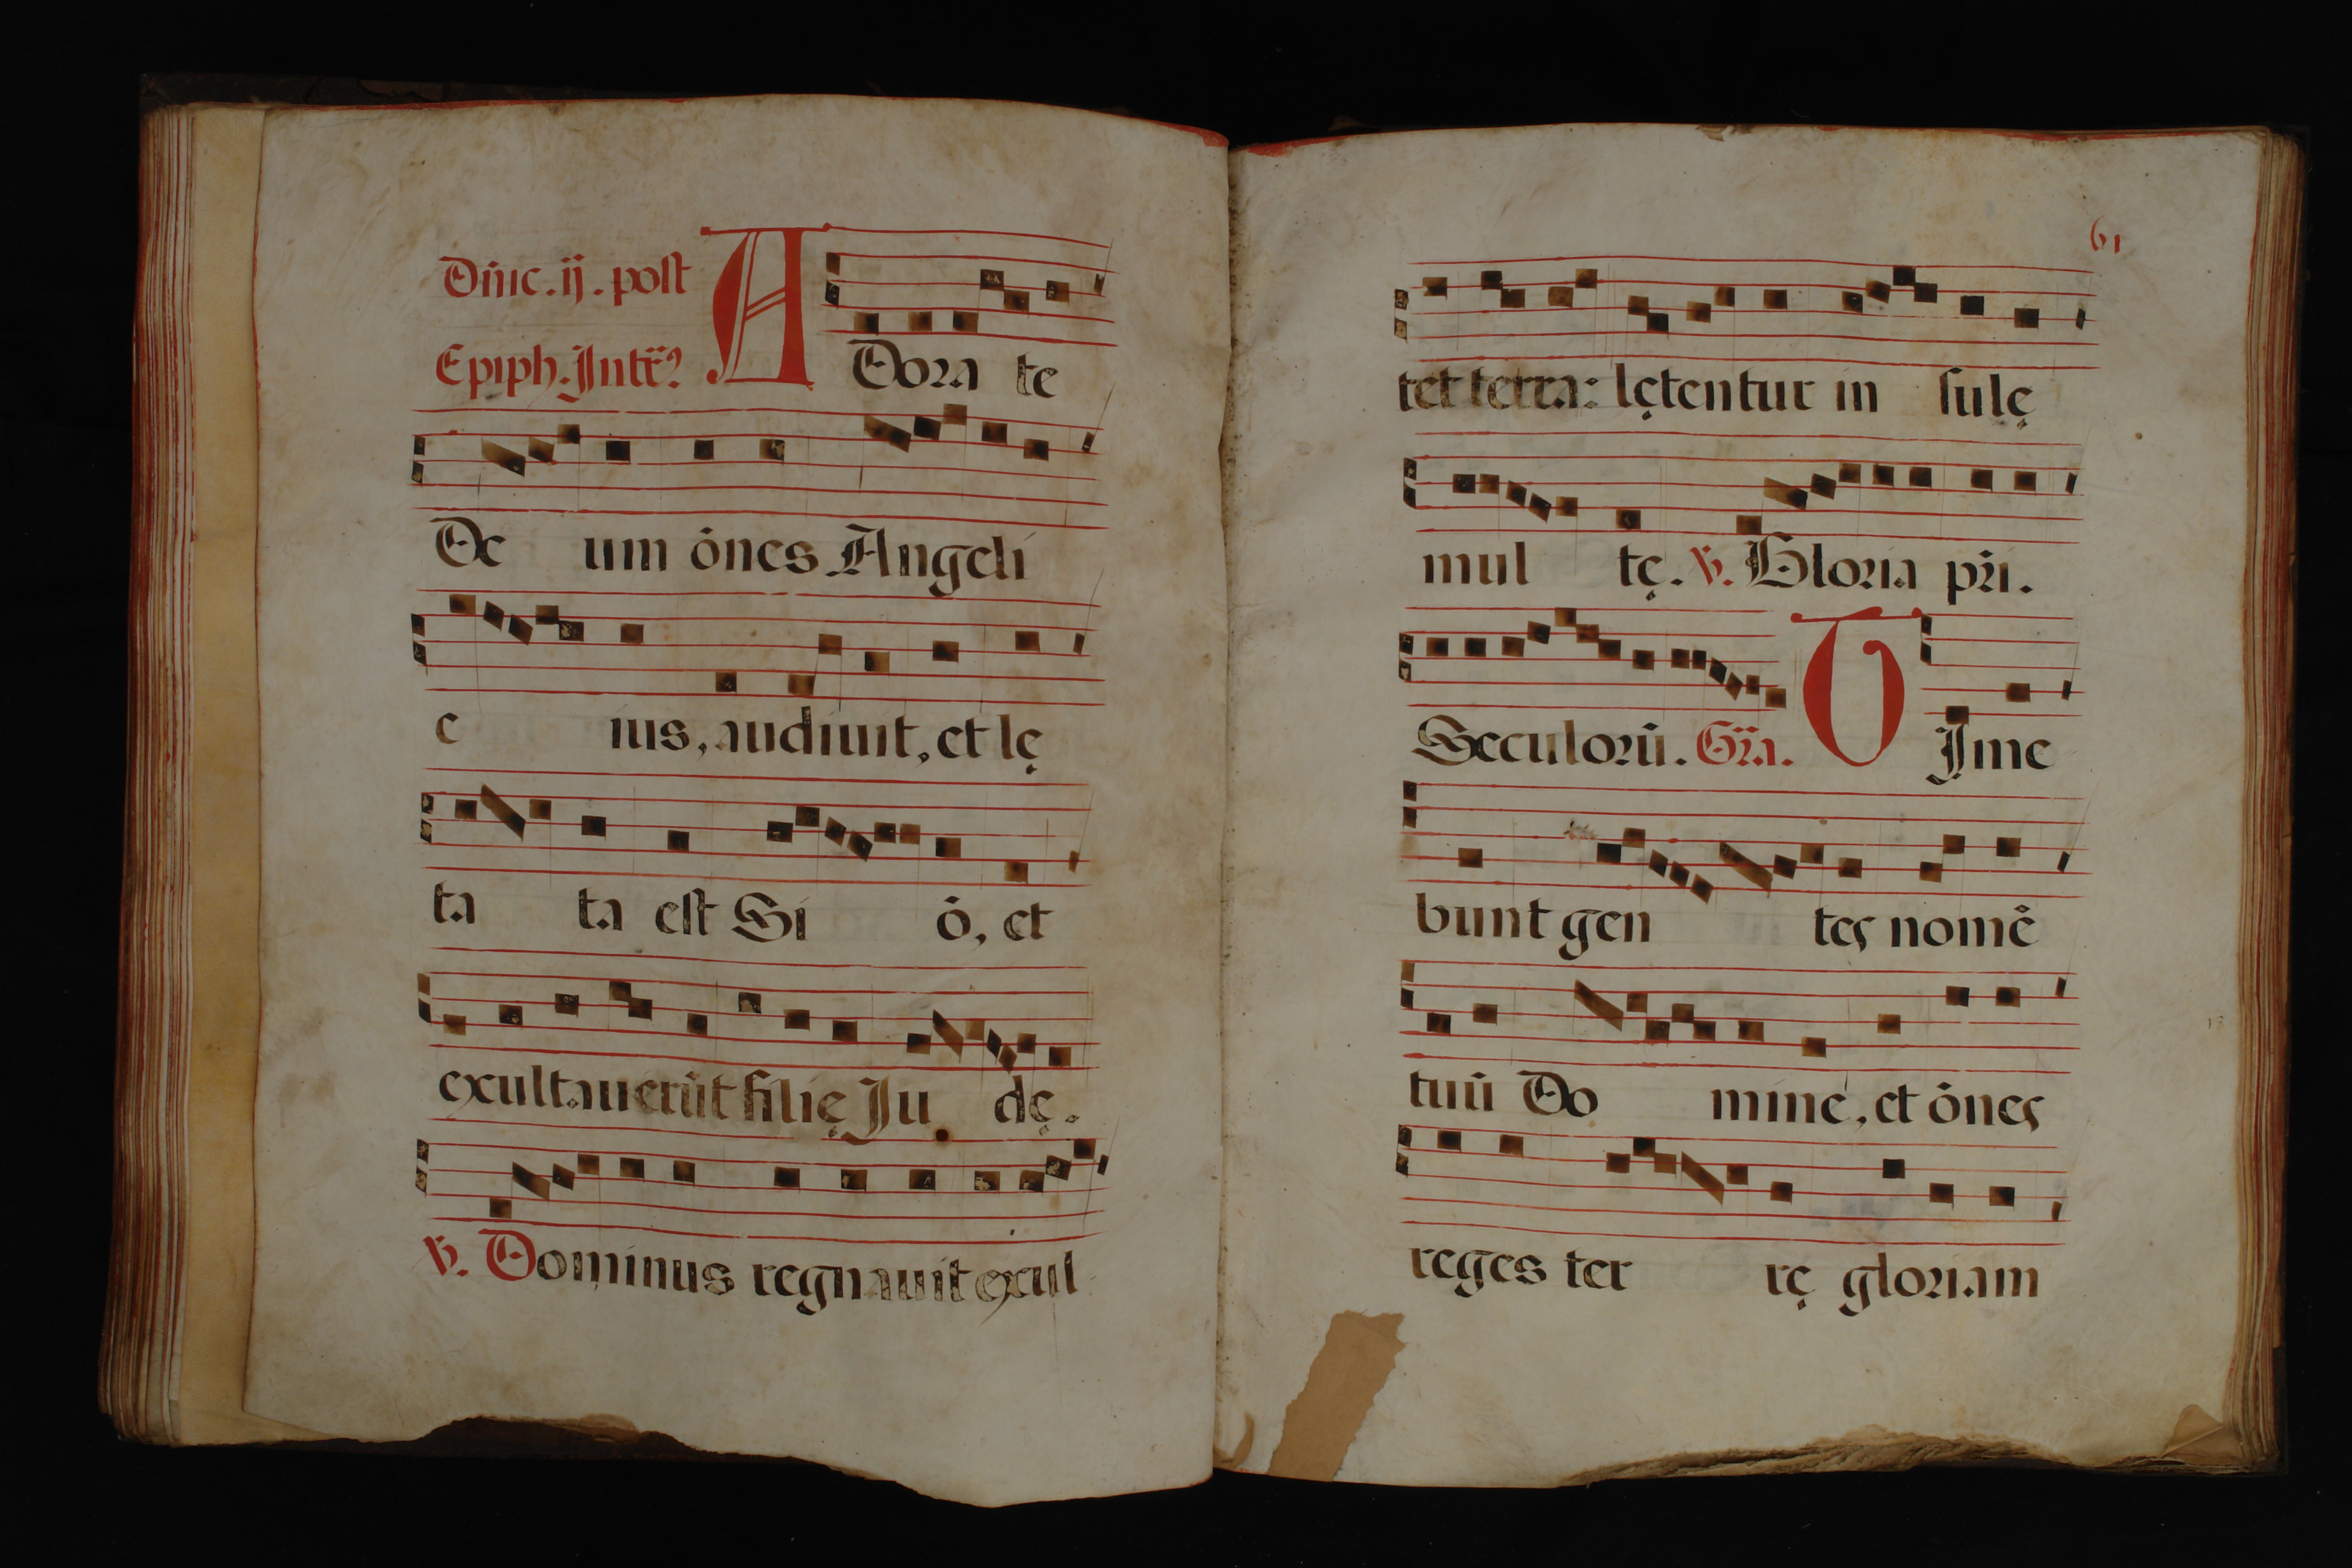 Dñic. ij. post
Epiph. Intr̃?
ADora te
De um õnes Angeli
e ius, audiuit, et lę
ta ta est Si õ, et
exultauerũt filię Ju dę.
℣. Dominus regnauit exul
61
tet terra: lętentur in sulę
mul tę. ℣. Gloria pr̃i.
Seculorũ. Gr̃a. TIme
bunt gen tes nomẽ
tuũ Do mine, et õnes
reges ter rę gloriam